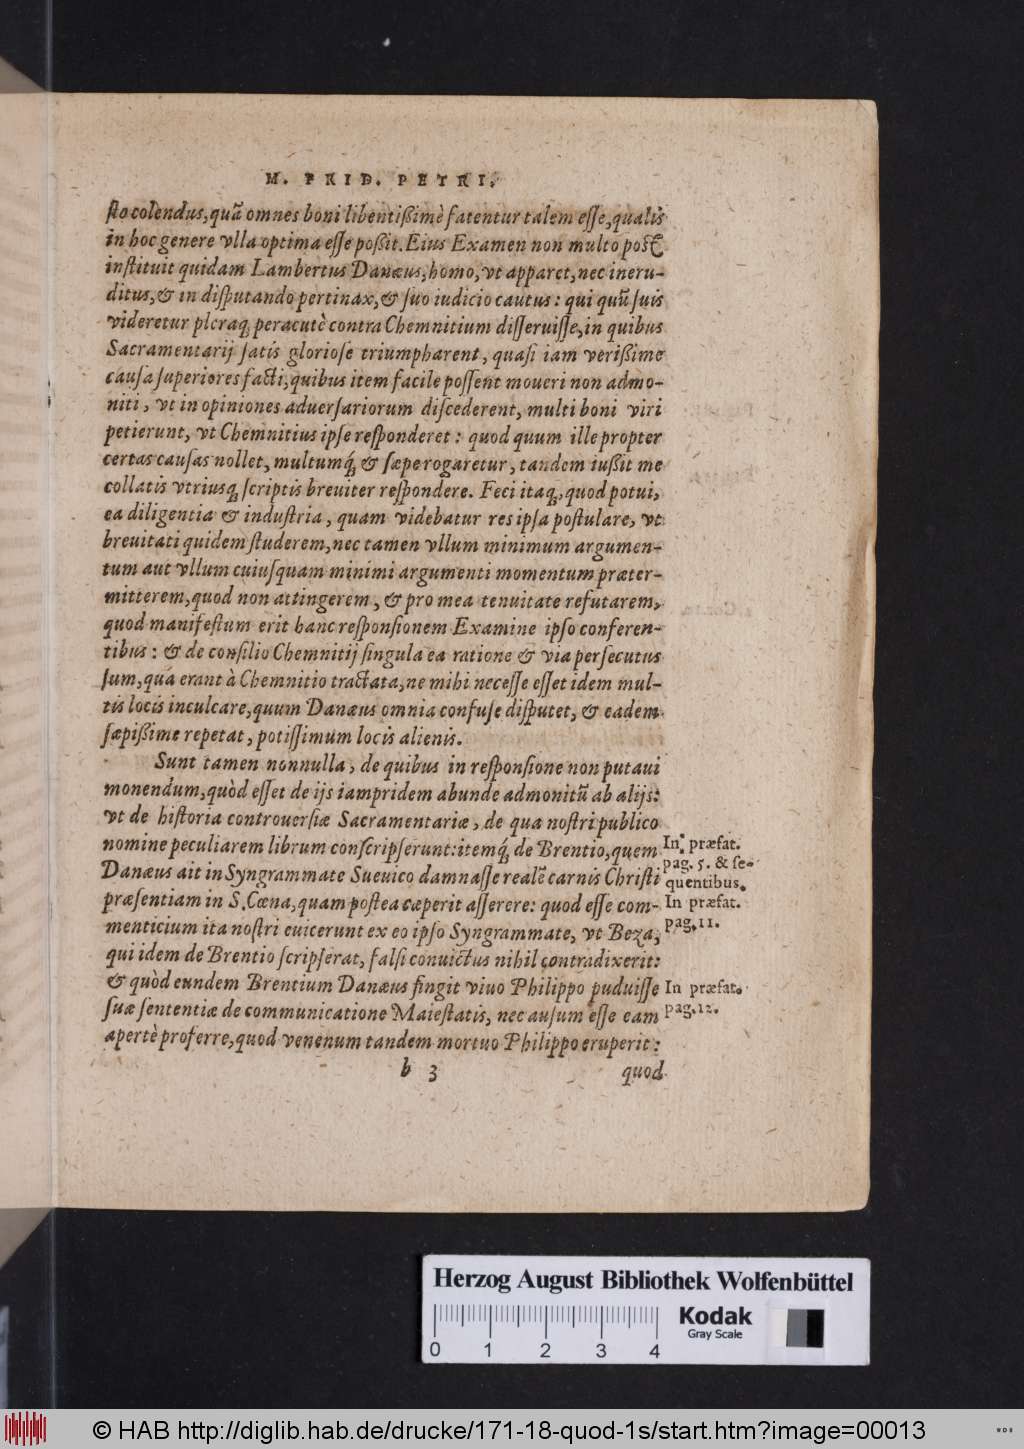 M. FRID. PETRI.
sto colendus, quā omnes boni libentißimè fatentur talem esse, qualis
in hoc genere vlla optima esse poßit. Eius Examen non multo post
instituit quidam Lambertus Danæus, homo, vt apparet, nec ineru-
ditus, & in disputando pertinax, & suo iudicio cautus: qui quū suis
videretur pleraq; peracutè contra Chemnitium disseruisse, in quibus
Sacramentarij satis gloriose triumpharent, quasi iam verißime
causa superiores facti, quibus item facile possent moueri non admo-
niti, vt in opiniones aduersariorum discederent, multi boni viri
petierunt, vt Chemnitius ipse responderet: quod quum ille propter
certas causas nollet, multumq́; & sæpe rogaretur, tandem iußit me
collatis vtriusq; scriptis breuiter respondere. Feci itaq;, quod potui,
ea diligentia & industria, quam videbatur res ipsa postulare, vt
breuitati quidem studerem, nec tamen vllum minimum argumen-
tum aut vllum cuiusquam minimi argumenti momentum præter-
mitterem, quod non attingerem, & pro mea tenuitate refutarem,
quod manifestum erit hanc responsionem Examine ipso conferen-
tibus: & de consilio Chemnitij singula ea ratione & via persecutus
sum, qua erant à Chemnitio tractata, ne mihi necesse esset idem mul-
tis locis inculcare, quum Danæus omnia confuse disputet, & eadem
sæpißime repetat, potissimum locis alienis.
Sunt tamen nonnulla, de quibus in responsione non putaui
monendum, quòd esset de ijs iampridem abunde admonitū ab alijs:
vt de historia controuersiæ Sacramentariæ, de qua nostri publico
nomine peculiarem librum conscripserunt: itemq́; de Brentio, quem
Danæus ait in Syngrammate Sueuico damnasse realē carnis Christi
præsentiam in S. Cœna, quam postea cæperit asserere: quod esse com-
menticium ita nostri euicerunt ex eo ipso Syngrammate, vt Beza,
qui idem de Brentio scripserat, falsi conuictus nihil contradixerit:
& quòd eundem Brentium Danæus fingit viuo Philippo puduisse
suæ sententiæ de communicatione Maiestatis, nec ausum esse eam
apertè proferre, quod venenum tandem mortuo Philippo eruperit:
b 3
quod
In præfat.
pag. 5. & se-
quentibus.
In præfat.
pag. 11.
In præfat.
pag. 12.
Herzog August Bibliothek Wolfenbüttel
0 1 2 3 4
Kodak
Gray Scale
© HAB http://diglib.hab.de/drucke/171-18-quod-1s/start.htm?image=00013